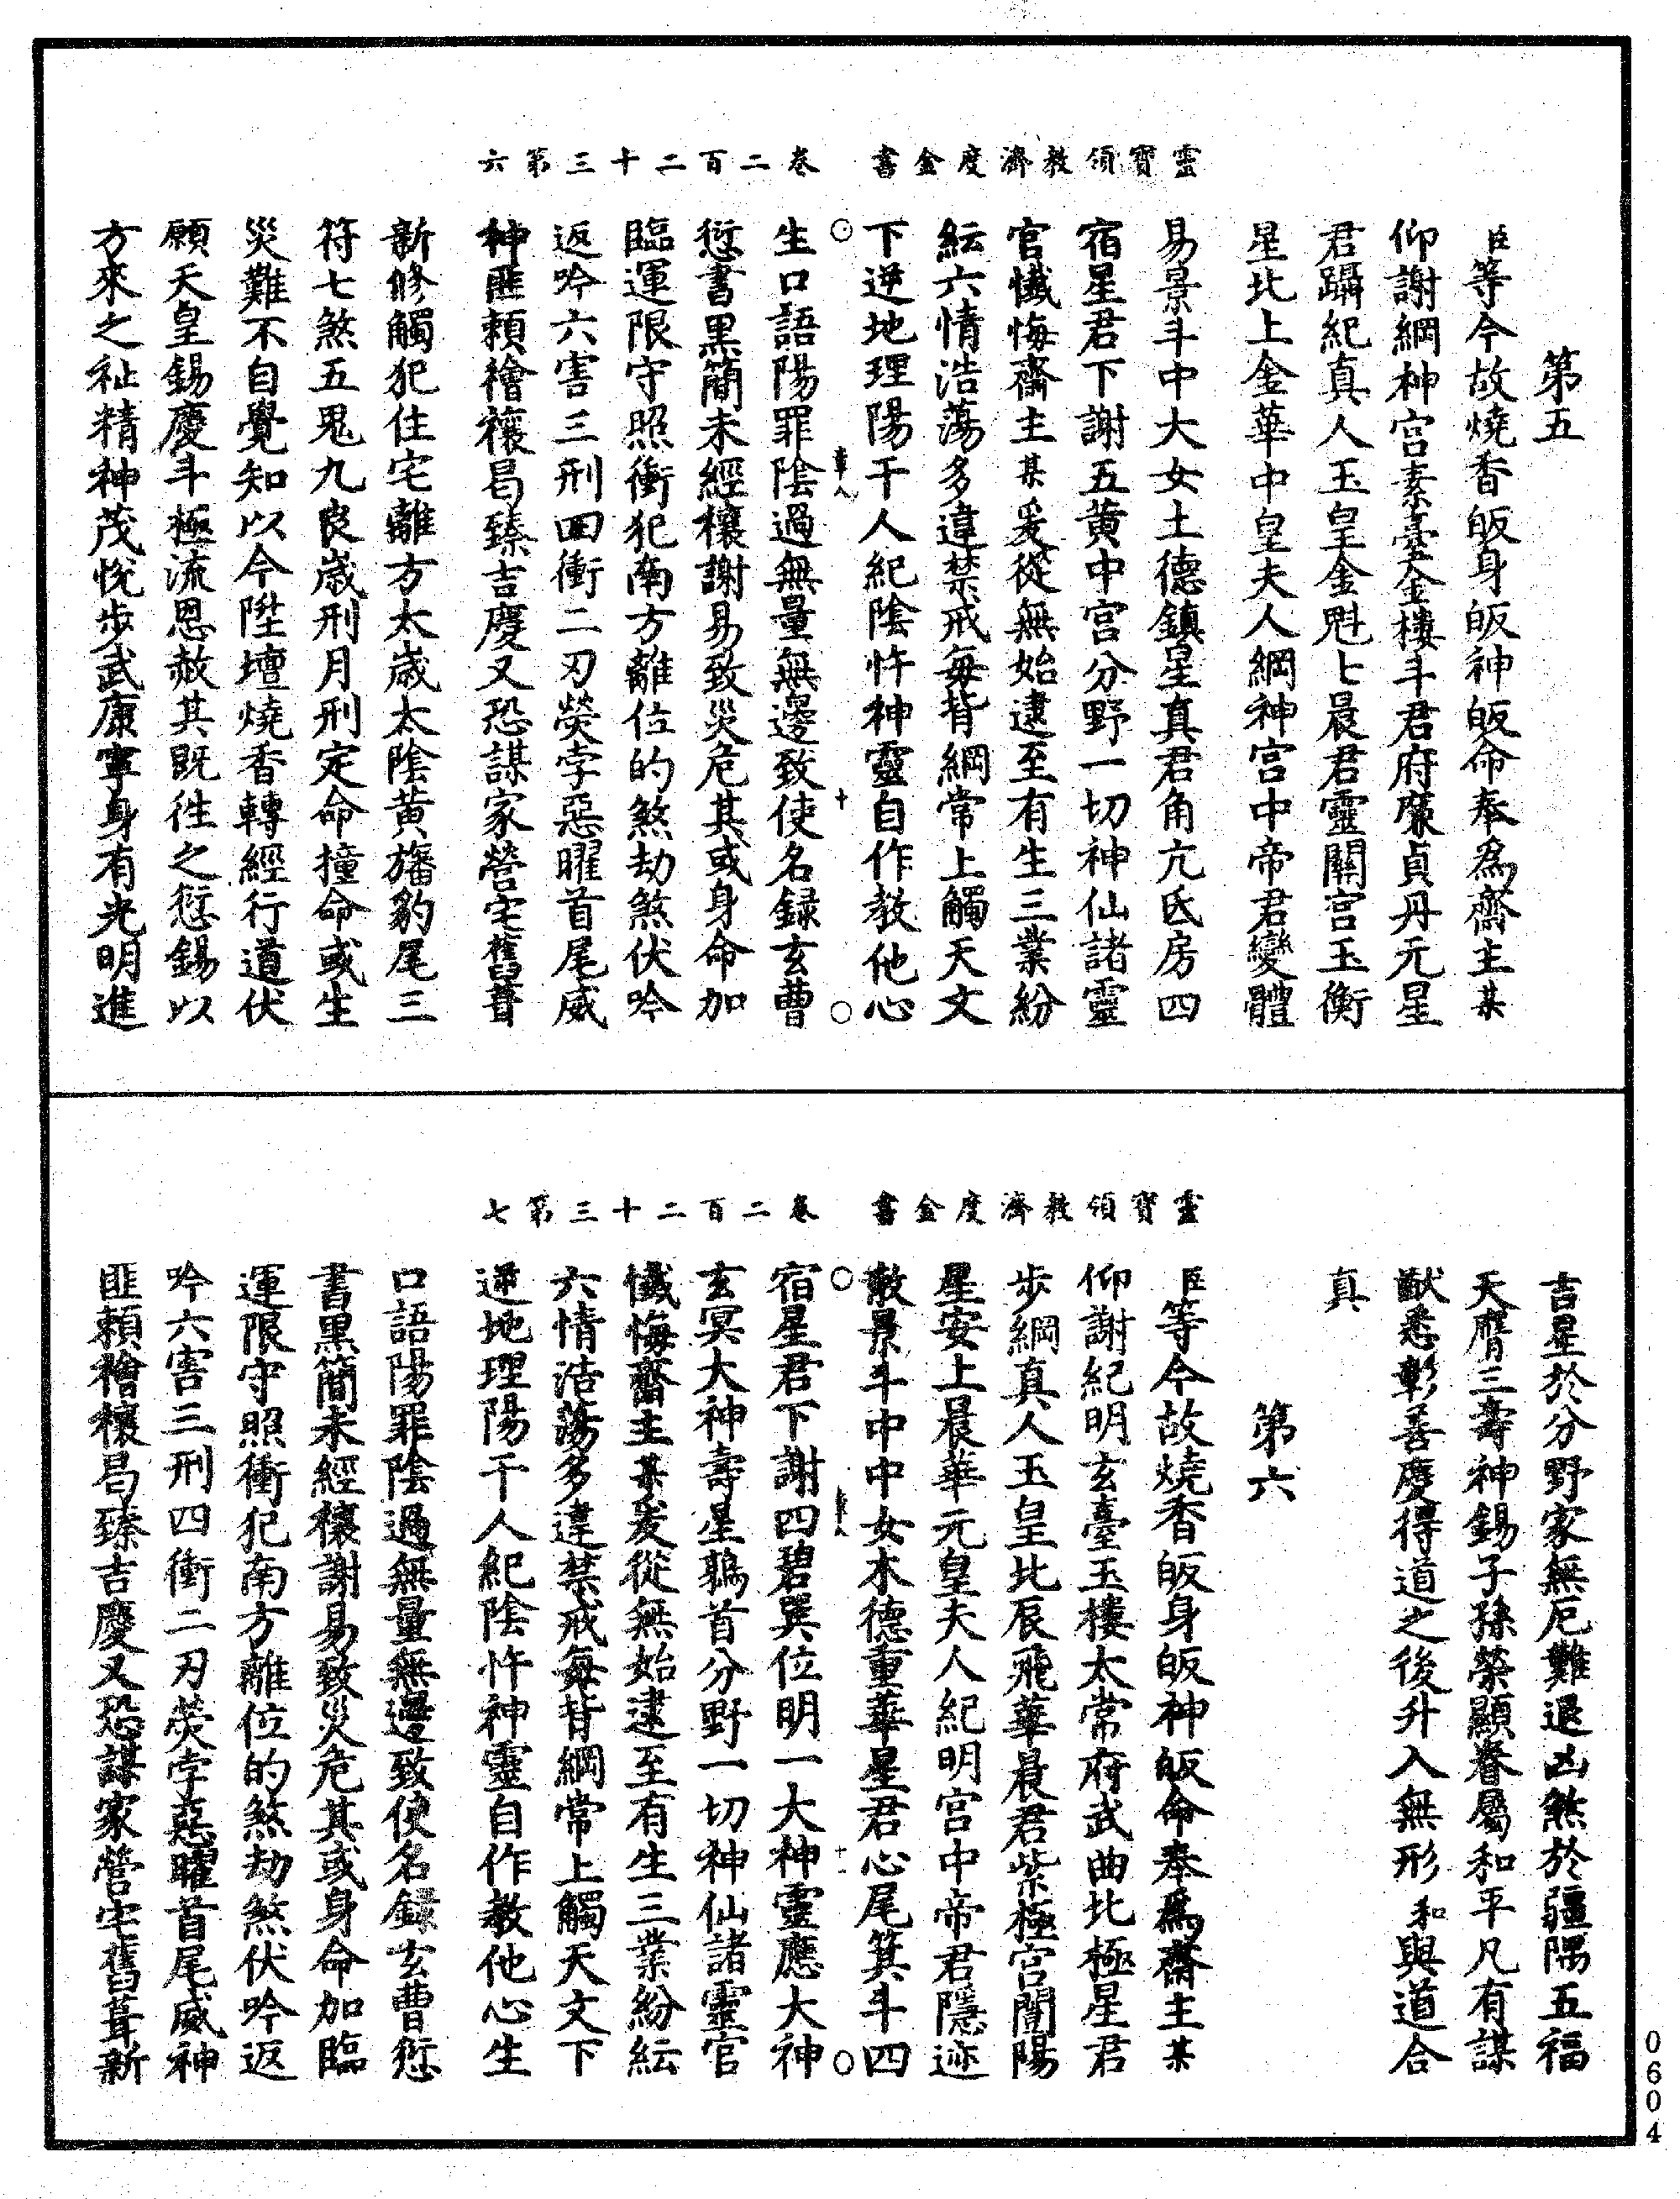 第五
臣等今故燒香皈身皈神皈命奉爲齋主某
仰謝綱神宮素臺金樓斗君府廉貞丹元星
君躡紀真人玉皇金魁七晨君靈關宮玉衡
星北上金華中皇夫人綱神宮中帝君變體
易景斗中大女土德鎮星真君角亢氐房四
宿星君下謝五黄中宮分野一切神仙諸靈
官懺悔齋主某爰從無始逮至有生三業紛
紜六情浩蕩多違禁戒每背綱常上觸天文
下逆地理陽干人紀陰忤神靈自作教他心
靈寶領教濟度金書 卷二百二十三第六
生口語陽罪陰過無量無邊致使名録玄曹
愆書黑簡未經禳謝易致災危其或身命加
臨運限守照衝犯南方離位的煞劫煞伏吟
返吟六害三刑四衝二刃熒孛惡曜首尾威
神匪頼禬禳曷臻吉慶又恐謀家營宅舊葺
新修觸犯住宅離方太歲太陰黄旛豹尾三
符七煞五鬼九良歲刑月刑定命撞命或生
災難不自覺知以今陞壇燒香轉經行道伏
願天皇錫慶斗極流恩赦其既往之愆錫以
方來之祉精神茂悅步武康寧身有光明進
吉星於分野家無厄難退凶煞於疆隅五福
天膺三壽神錫子孫榮顯眷屬和平凡有謀
猷悉彰善慶得道之後升入無形和與道合
真
第六
臣等今故燒香皈身皈神皈命奉爲齋主某
仰謝紀明玄臺玉樓太常府武曲北極星君
步綱真人玉皇北辰飛華晨君紫極宮闓陽
星安上晨華元皇夫人紀明宮中帝君隱迹
散景斗中中女木德重華星君心尾箕斗四
靈寶領教濟度金書 卷二百二十三第七
宿星君下謝四碧巽位明一大神靈應大神
玄冥大神壽星鶉首分野一切神仙諸靈官
懺悔齋主某爰從無始逮至有生三業紛紜
六情浩蕩多違禁戒每背綱常上觸天文下
逆地理陽干人紀陰忤神靈自作教他心生
口語陽罪陰過無量無邊致使名録玄曹愆
書黑簡未經禳謝易致災危其或身命加臨
運限守照衝犯南方離位的煞劫煞伏吟返
吟六害三刑四衝二刃熒孛惡曜首尾威神
匪頼禬禳曷臻吉慶又恐謀家營宅舊葺新
0604